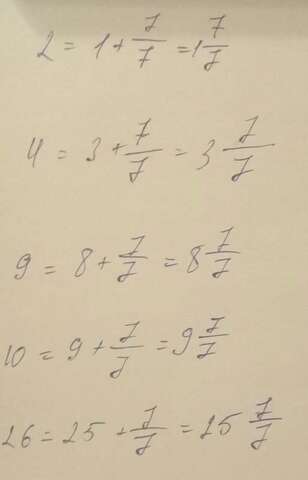 2 = 1 + 7/7 = 1 7/7
4 = 3 + 7/7 = 3 7/7
9 = 8 + 7/7 = 8 7/7
10 = 9 + 7/7 = 9 7/7
26 = 25 + 7/7 = 25 7/7